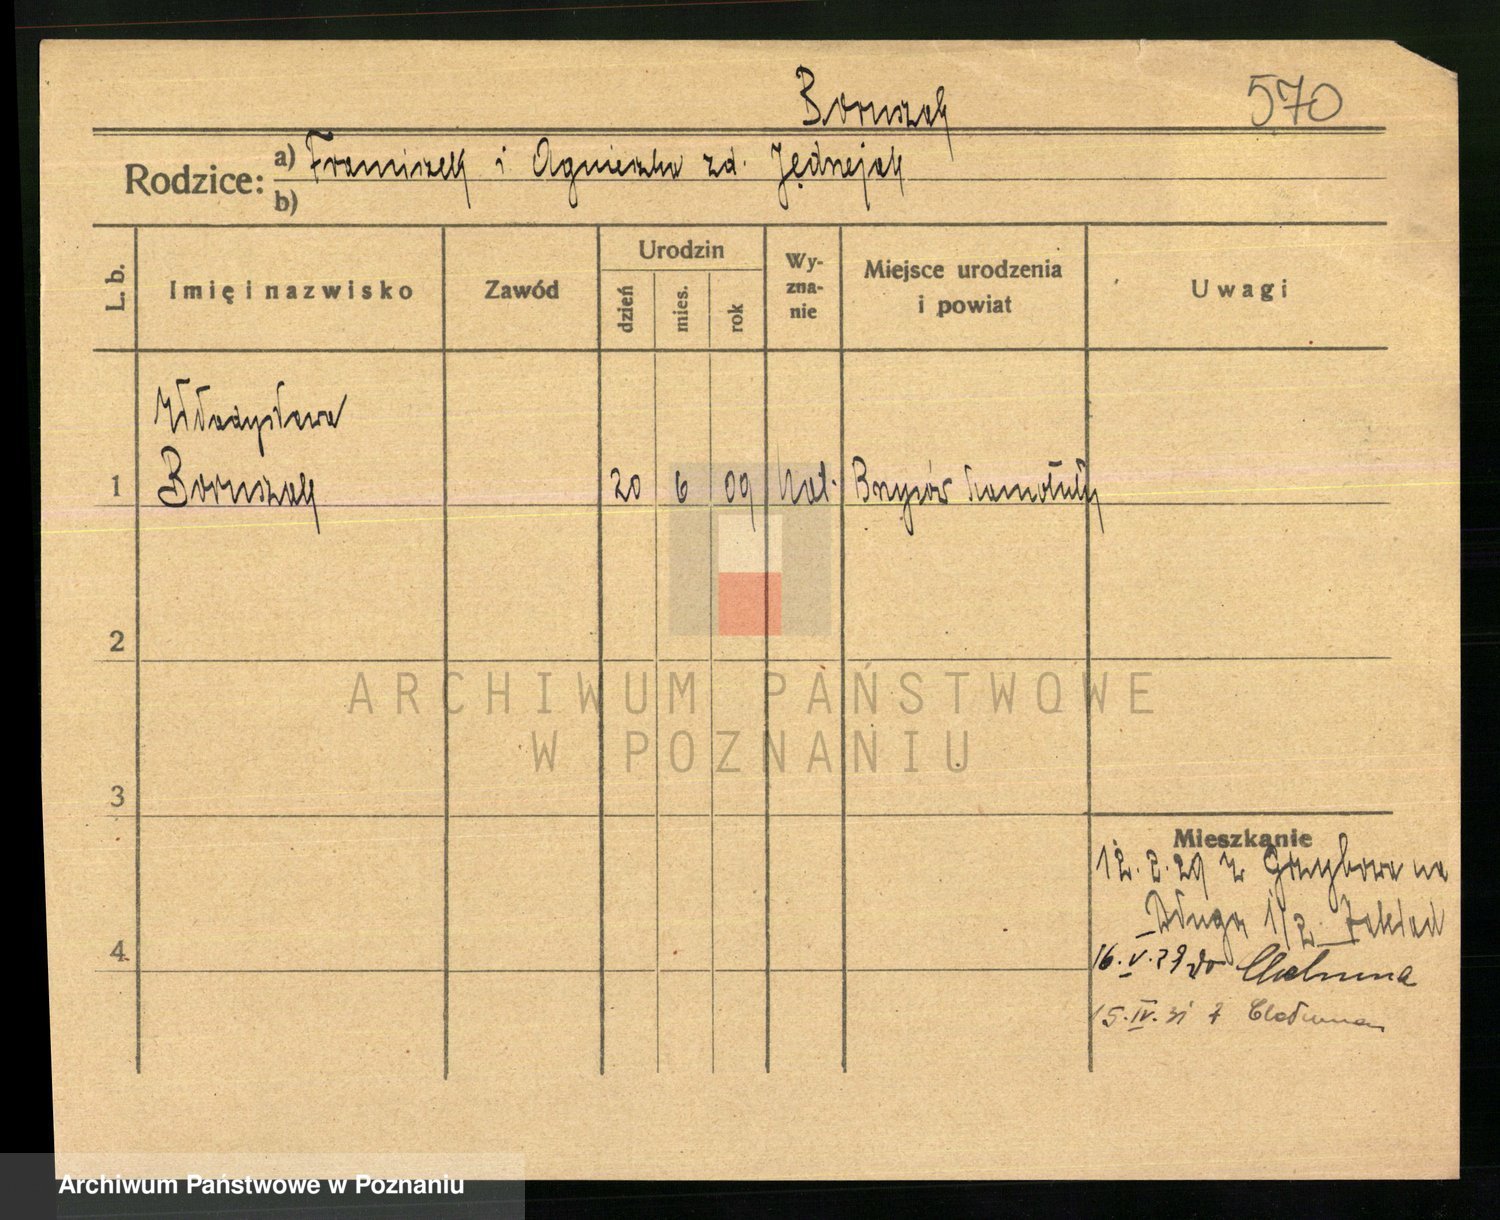 Boruszak
570
Rodzice: a) Franciszek i Agnieszka zd. Jędrzejak
b)
L. b.
Imię i nazwisko
Zawód
Urodzin
dzień
mies.
rok
Wy-
zna-
nie
Miejsce urodzenia
i powiat
Uwagi
Władysława
1 Boruszak 20 6 09 kat.
2
3
4
Mieszkanie
12. 2. 29 z Grzybowa na
Długa 1/2 Zakład
16.V.29 do Chełmna
15.IV.31 z Chełmna
ARCHIWUM PAŃSTWOWE
W POZNANIU
Archiwum Państwowe w Poznaniu